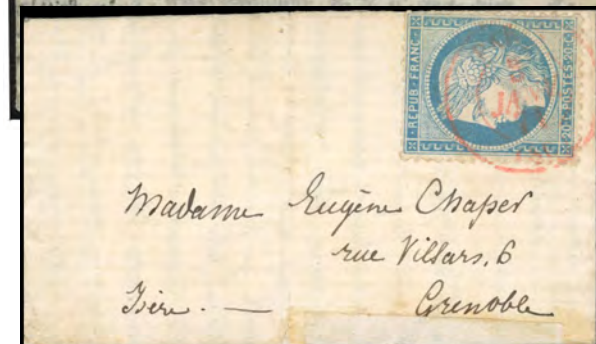 REPUB·FRANC·
20·C·POSTES·20·C·
JA
Madame Eugène Chaper
rue Villars, 6
Isère. — Grenoble